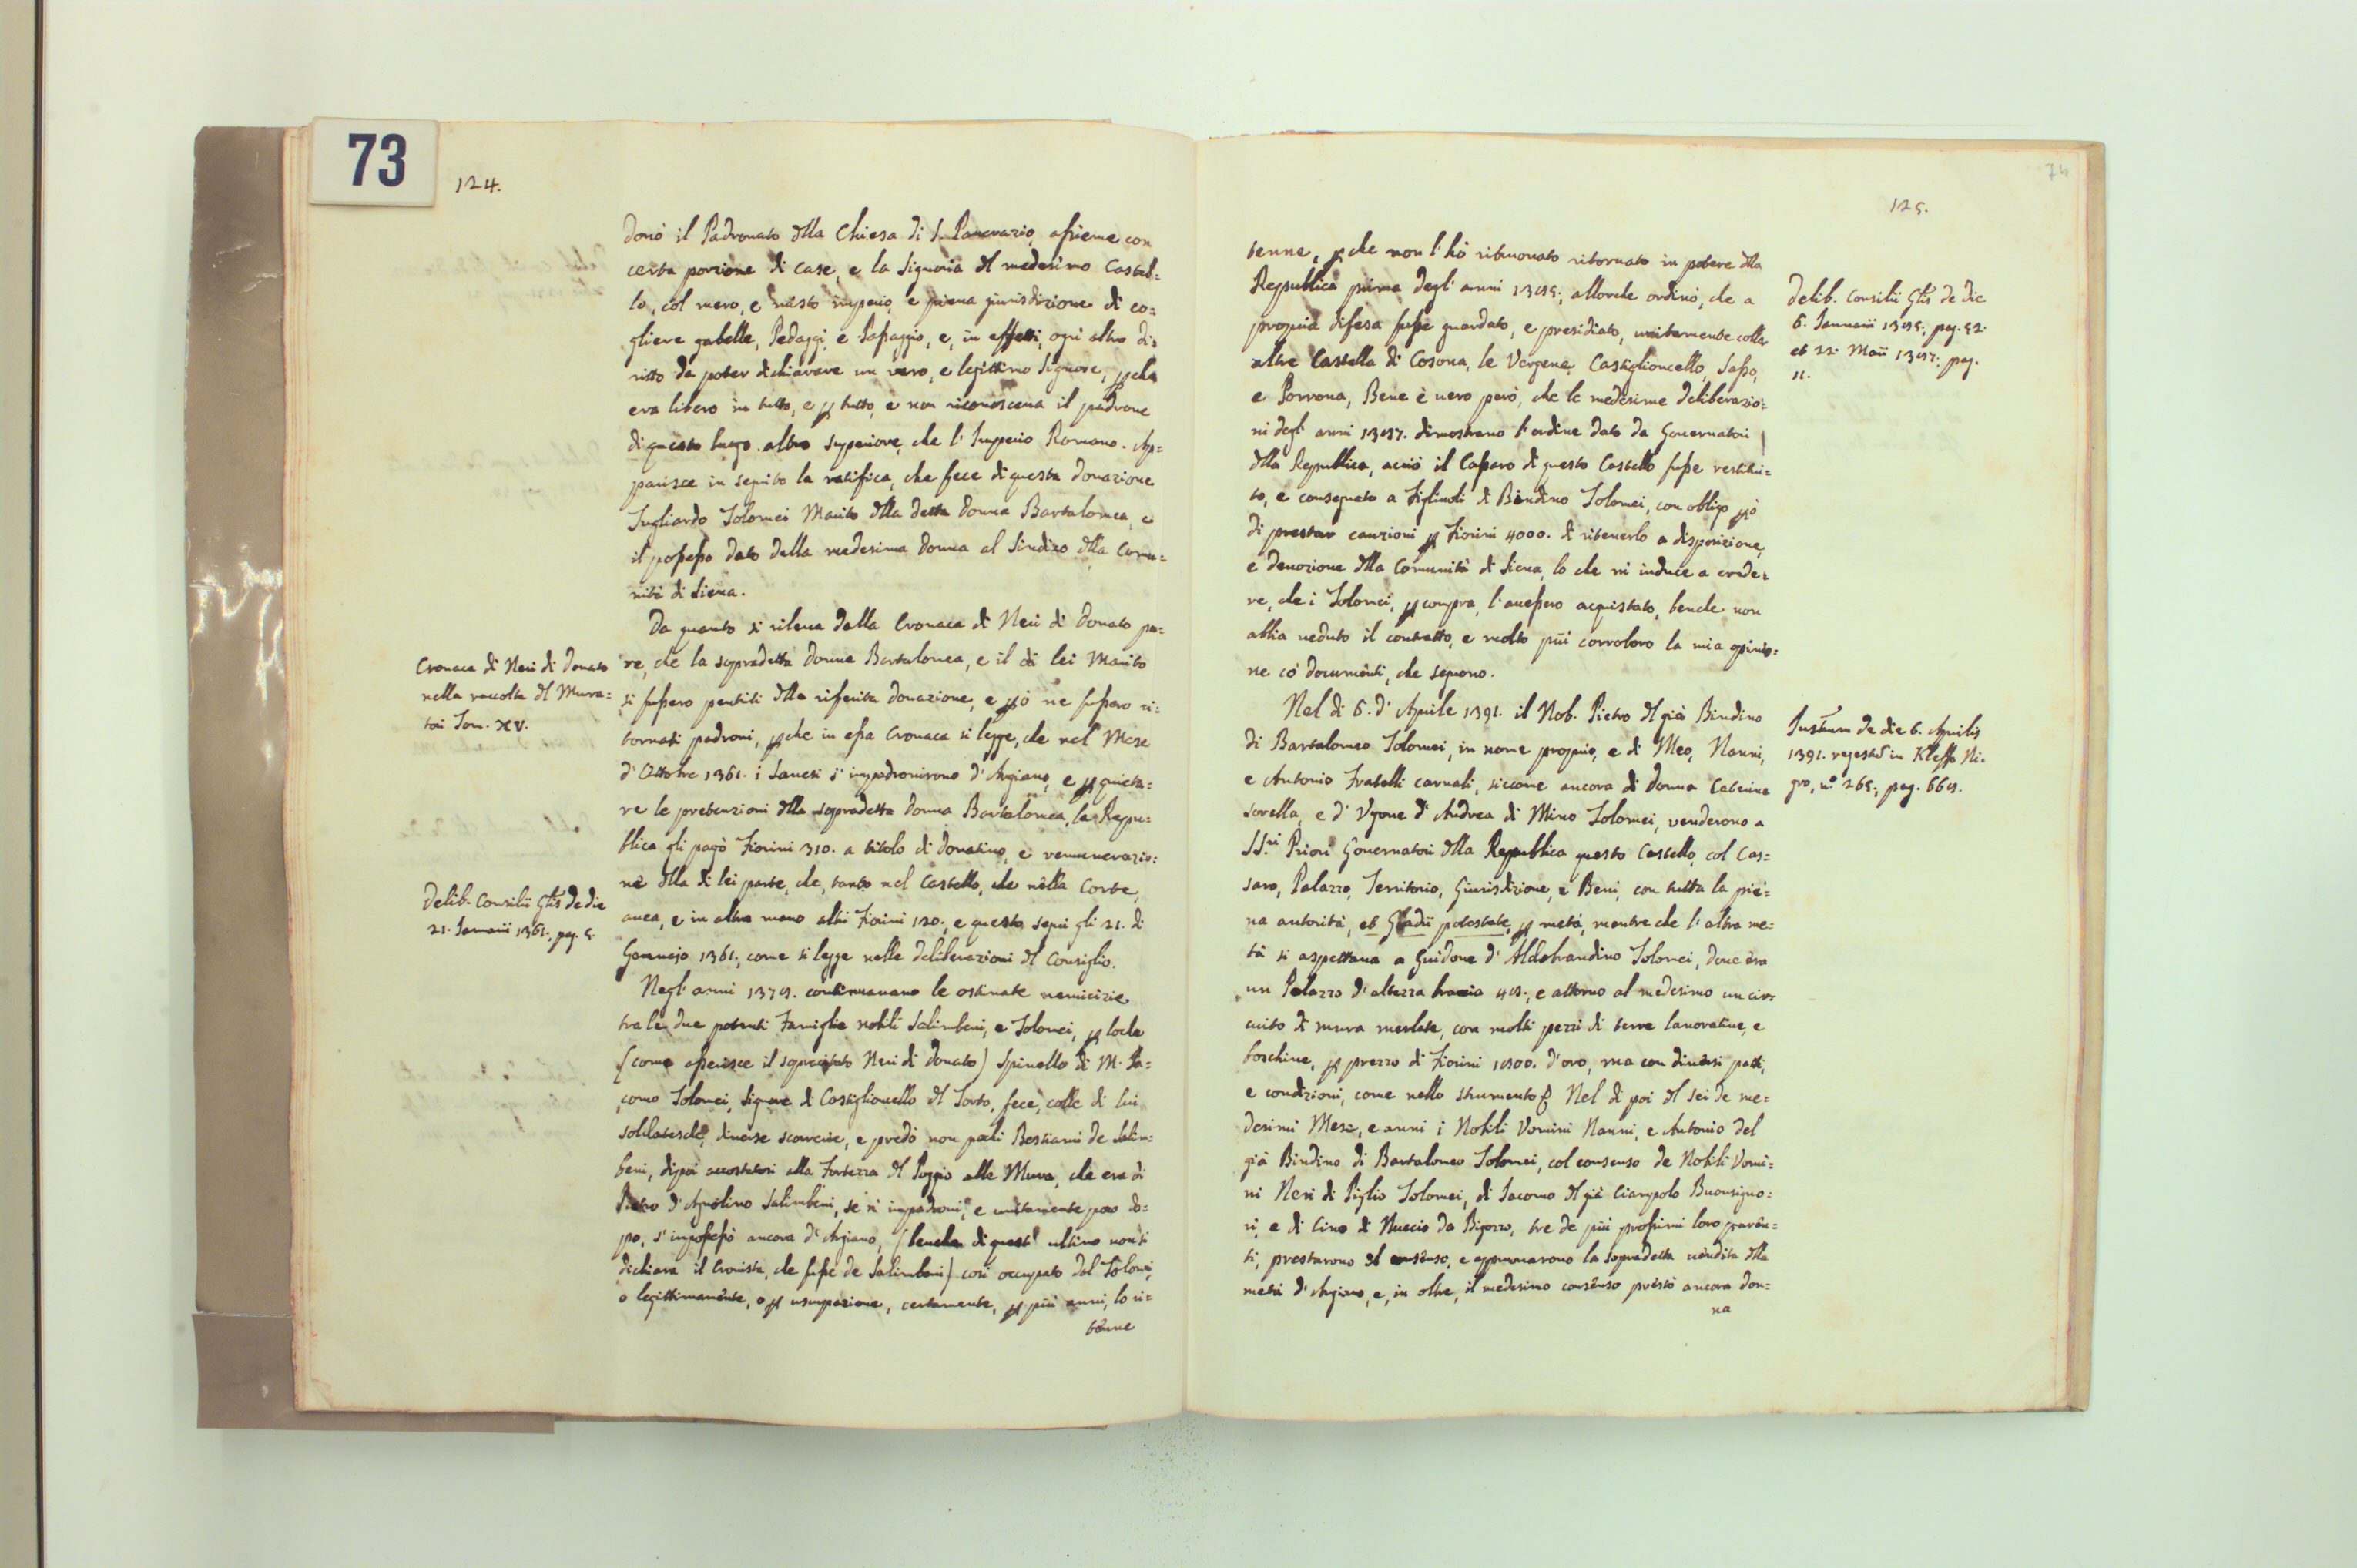 73
124.
donò il Padronato della Chiesa di S. Pancrazio, assieme con
certa porzione di case, e la Signoria del medesimo Castel=
lo, col mero, e misto imperio, e piena giurisdizione di co=
gliere gabelle, Pedaggi, e Passaggio, e, in effetti, ogni altro di=
ritto da poter dichiarare un vero, e legittimo Signore, perche
era libero in tutto, e per tutto, e non riconosceva il padrone
di questo luogo altro superiore, che l'Imperio Romano. Ap=
parisce in seguito la ratifica, che fece di questa donazione
Sugliardo Tolomei Marito della detta donna Bartalomea, e
il possesso dato dalla medesima donna al Sindico della Comu=
nità di Siena.
Da quanto si rileva dalla Cronaca di Neri di Donato pa=
re, che la sopradetta donna Bartalomea, e il di lei Marito
si fussero pentiti della riferita donazione, e però ne fussero ri=
tornati padroni, perche in essa Cronaca si legge, che nel Mese
d'Ottobre 1361. i Sanesi s'impadronirono d'Argiano, e per quieta=
re le pretenzioni della sopradetta donna Bartalomea, la Repu=
blica gli pagò Fiorini 310. a titolo di donativo, e remunerazio=
ne della di lei parte, che, tanto nel Castello, che nella Corte,
avea, e in altra mano altri Fiorini 120., e questo seguì gli 21. di
Gennajo 1361., come si legge nelle deliberazioni del Consiglio.
Negl'anni 1379. continuavano le ostinate nemicizie
tra le due potenti Famiglie nobili Salimbeni, e Tolomei, per loche
(come asserisce il sopracitato Neri di Donato) Spinello di M. Ja=
como Tolomei, Signore di Castiglioncello del Torto, fece, colle di lui
soldatesche, diverse scorrerie, e predò non pochi Bestiami de Salim=
beni, dipoi accostatosi alla Fortezza del Poggio alle Mura, che era di
Pietro d'Agnolino Salimbeni, se n'impadronì, e unitamente poco do=
po, s'impossessò ancora d'Argiano, (benche di quest'ultimo non si
dichiara il Cronista, che fusse de Salimbeni) così occupato dal Tolomei,
o legittimamente, o per usurpazione, certamente, per più anni, lo ri=
tenne
Cronaca di Neri di Donato
nella raccolta del Mura=
tori Tom. XV.
Delib. Consilii Gtis de die
21. Januarii 1361., pag. 5.
74
125.
tenne, perche non l'hò ritrovato ritornato in potere della
Republica prima degl'anni 1395., allorche ordinò, che a
propria difesa fusse guardato, e presidiato, unitamente colle
altre Castella di Cosona, le Vergene, Castiglioncello, Sasso,
e Porrona, Bene è vero però, che le medesime deliberazio=
ni degl'anni 1397. dimostrano l'ordine dato da Governatori
della Republica, acciò il Cassero di questo Castello fusse restitui=
to, e consegnato a Figliuoli di Bindino Tolomei, con obligo però
di prestar cauzioni per Fiorini 4000. di ritenerlo a disposizione,
e devozione della Comunità di Siena, lo che mi induce a crede=
re, che i Tolomei, per compra, l'avessero acquistato, benche non
abbia veduto il contratto, e molto più corroboro la mia opinio=
ne co' documenti, che seguono.
Nel dì 6. d'Aprile 1391. il Nob. Pietro del già Bindino
di Bartalomeo Tolomei, in nome proprio, e di Meo, Nanni,
e Antonio Fratelli carnali, siccome ancora di donna Caterina
sorella, e d'Ugone d'Andrea di Mino Tolomei, venderono a
SS.ri Priori Governatori della Republica questo Castello, col Cas=
saro, Palazzo, Territorio, Giurisdizione, e Beni, con tutta la pie=
na autorità, et Gladii potestate, per metà, mentre che l'altra me=
tà si aspettava a Guidone d'Aldobrandino Tolomei, dove era
un Palazzo d'altezza braccia 40., e attorno al medesimo un cir=
cuito di mura merlate, con molti pezzi di terre lavorative, e
boschive, per prezzo di Fiorini 1900. d'oro, ma con diversi patti,
e condizioni, come nello strumento. Nel dì poi del sei de me=
desimi Mese, e anni i Nobili Uomini Nanni, e Antonio del
già Bindino di Bartalomeo Tolomei, col consenso de Nobili Uomi=
ni Neri di Piglio Tolomei, di Jacomo del già Ciampolo Buonsigno=
ri, e di Cino di Nuccio da Bigozzo, tre de più prossimi loro paren=
ti, prestarono il consenso, e approvarono la sopradetta vendita della
metà d'Argiano, e, in oltre, il medesimo consenso prestò ancora don=
na
Delib. Consilii Gtis de die
6. Januarii 1395., pag. 52.
et 22. Maii 1397., pag.
11.
Instrum de die 6. Aprilis
1391. regestũ in Kleffo Ni.
gro, n.º 265., pag. 669.